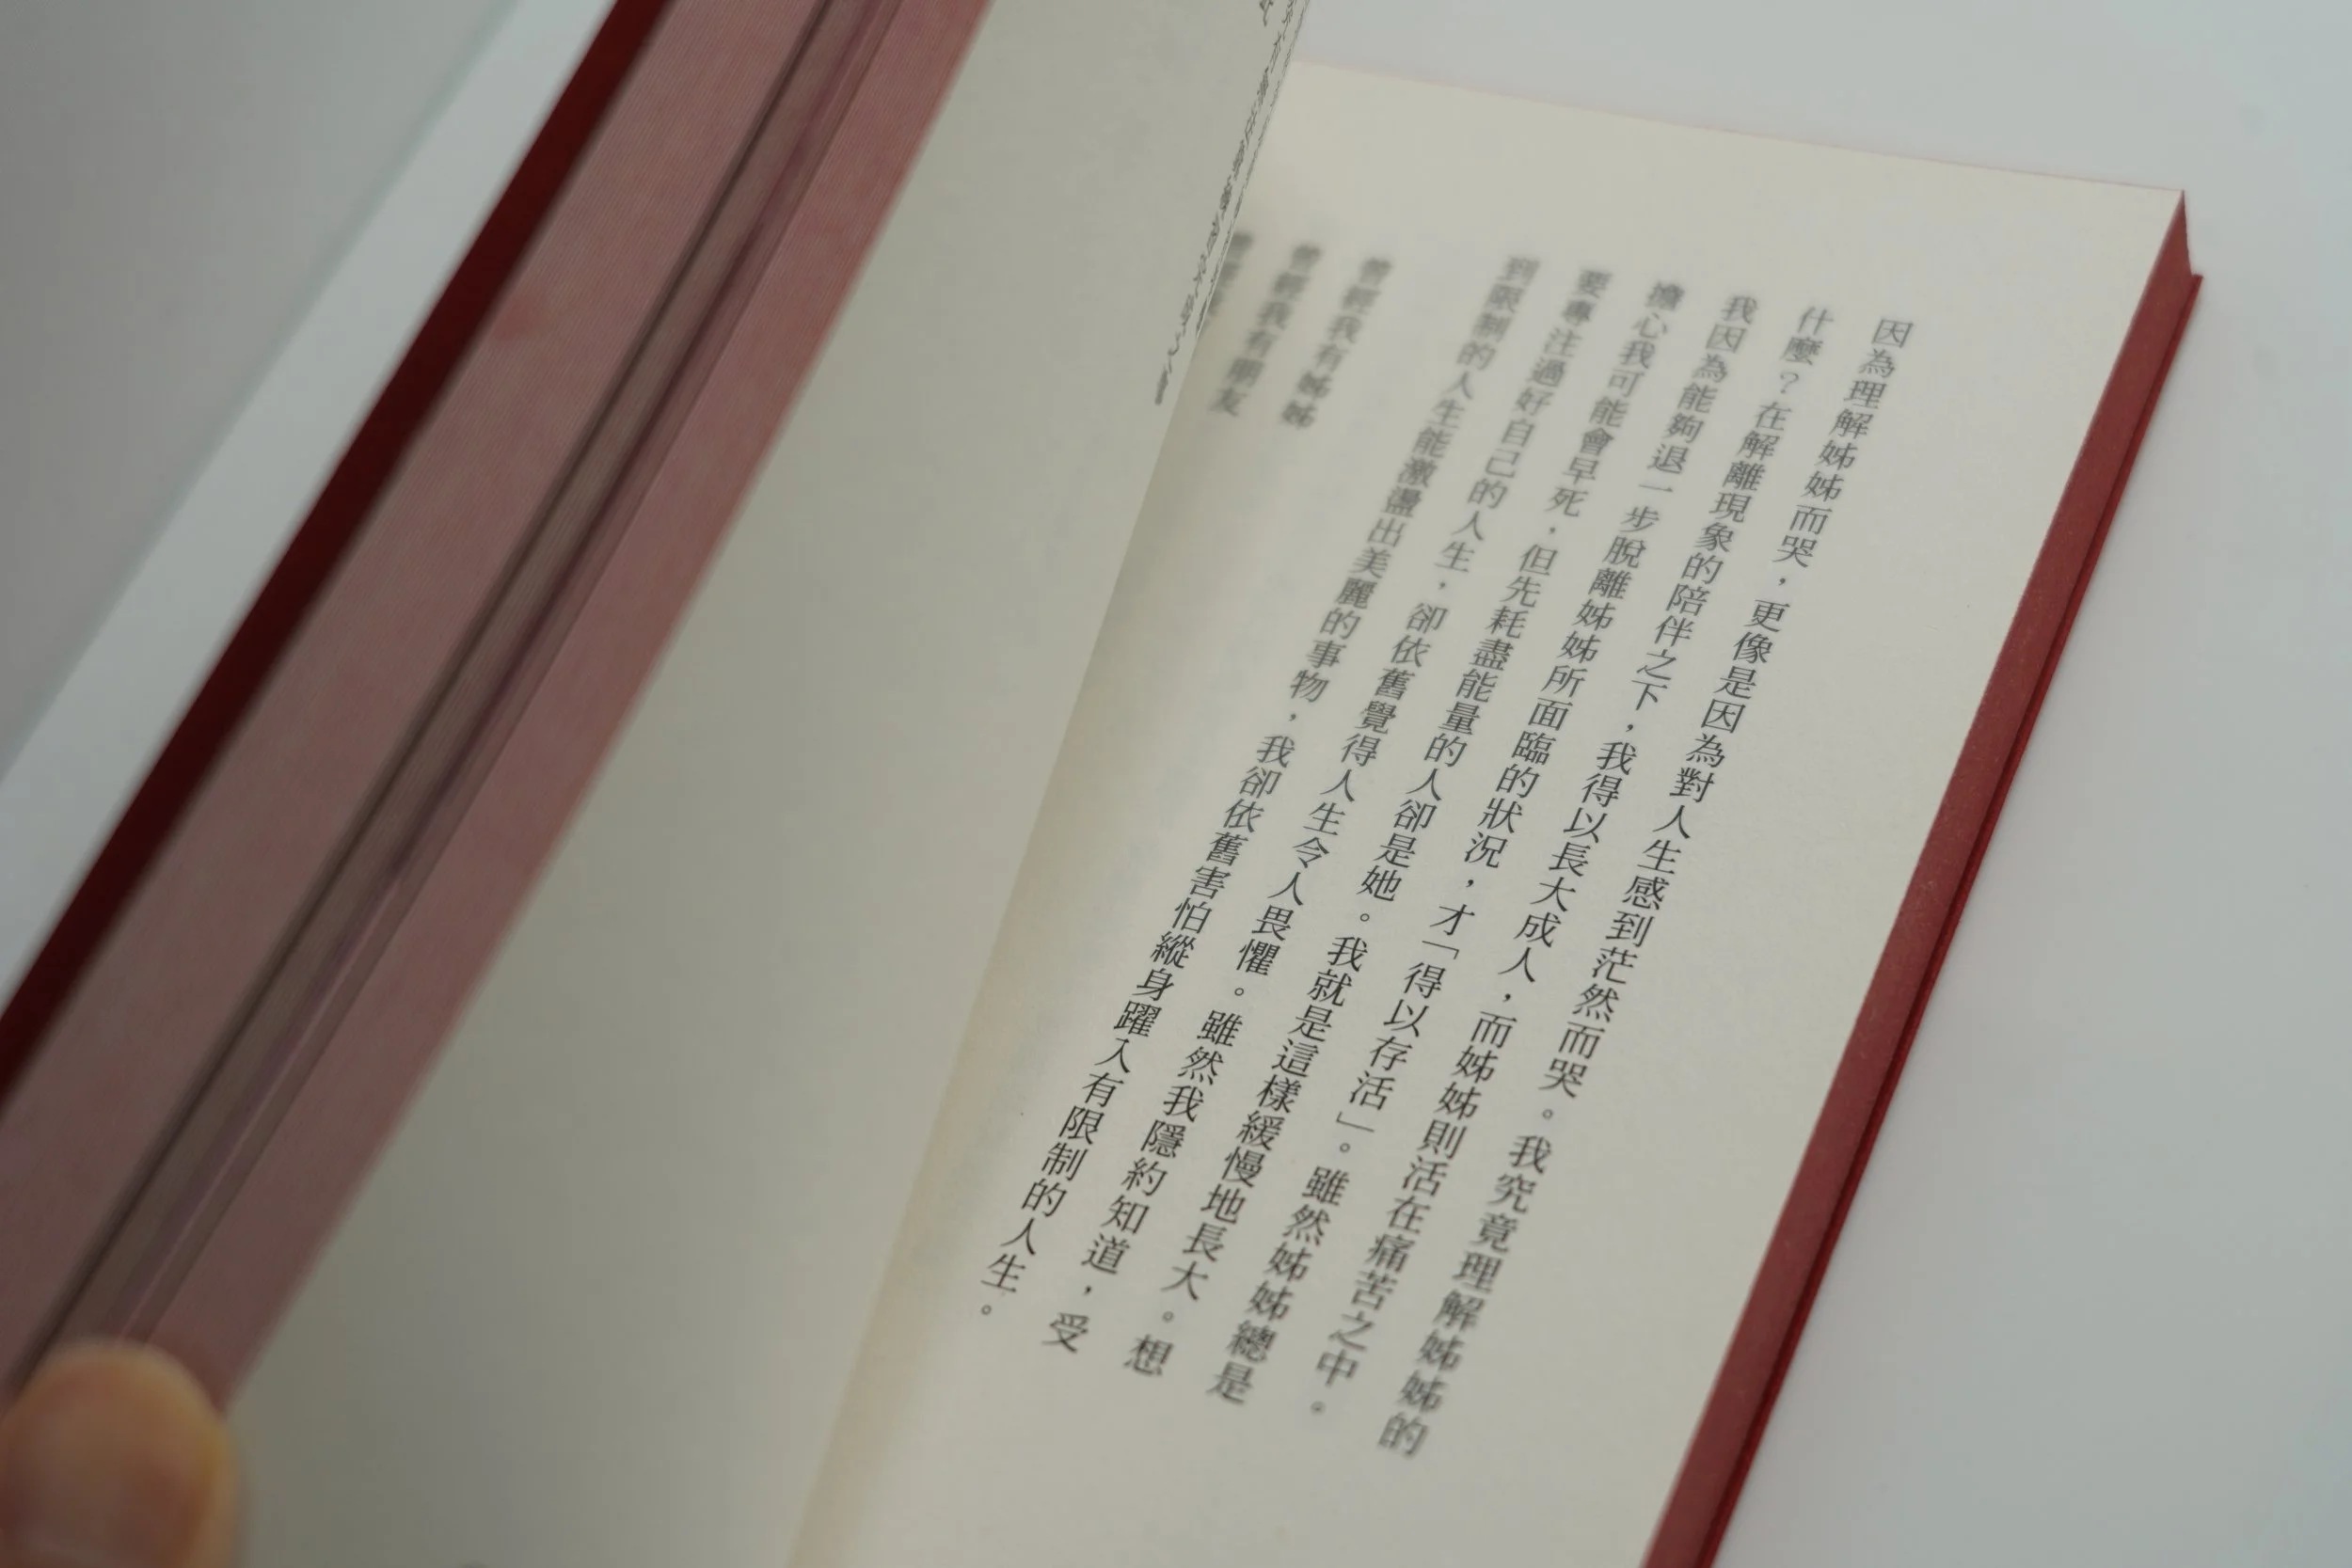 因為理解姊姊而哭，更像是因為對人生感到茫然而哭。我究竟理解姊姊的
什麼？在解離現象的陪伴之下，我得以長大成人，而姊姊則活在痛苦之中。
我因為能夠退一步脫離姊姊所面臨的狀況，才「得以存活」。雖然姊姊總是
擔心我可能會早死，但先耗盡能量的人卻是她。我就是這樣緩慢地長大。想
要專注過好自己的人生，卻依舊覺得人生令人畏懼。雖然我隱約知道，受
到限制的人生能激盪出美麗的事物，我卻依舊害怕縱身躍入有限制的人生。
曾經我有姊姊
曾經我有朋友